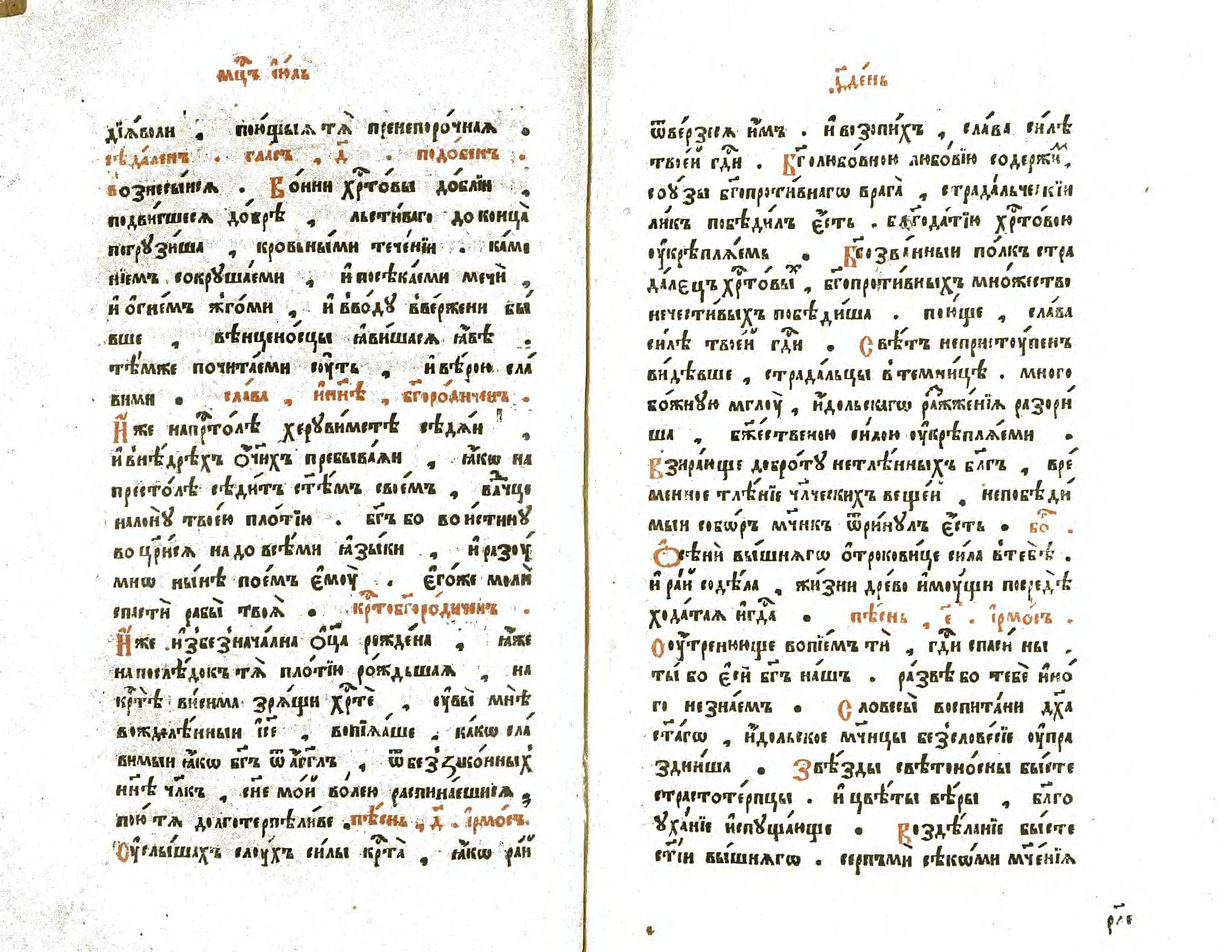 мц҃ъ і҆ю́ль
дїѧ́волꙋ . пою́щыѧ тѧ̀ пренепоро́чнаѧ .
сѣда́ленъ . гла́съ , д҃ . подо́бенъ .
вознесы́исѧ . Во́ини хрⷭ҇то́вы до́блїи ,
подви́гшесѧ до́брѣ , льсти́ваго до конца̀
погрꙋзи́ша , кро́вными тече́нїи . ка́ме
нїемъ сокрꙋша́еми , и҆ посѣка́еми мечѝ ,
и҆ ѻ҆гне́мъ жго́ми , и҆ в во́дꙋ вве́ржени бы́
вше , вѣнцено́сцы ꙗ҆ви́шасѧ ꙗ҆́вѣ .
тѣ́мже почита́еми сꙋ́ть , и҆ вѣ́рою сла́
вими . сла́ва , и҆ ны́нѣ , бг҃оро́диченъ .
И҆́же на прⷭ҇то́лѣ херꙋви́мстѣ сѣдѧ́и ,
и҆ в нѣ́дрѣхъ ѻ҆́ч҃ихъ пребыва́ѧи , ꙗ҆́кѡ на
престо́лѣ сѣди́тъ ст҃ѣ́мъ свое́мъ , влⷣчце
на ло́нꙋ твоє́ю пло́тїю . бг҃ъ бо во и҆́стинꙋ
во цр҃и́сѧ надо всѣ́ми ꙗ҆зы́ки , и҆ разꙋ́
мнѡ ны́нѣ пое́мъ є҆мꙋ̀ . є҆го́же молѝ
спастѝ рабы̀ твоѧ̀ . крⷭ҇тобг҃оро́диченъ .
И҆́же и҆з̾ безнача́лна ѻ҆ц҃а̀ рожде́на , ꙗ҆́же
на послѣ́докъ тѧ̀ пло́тїю ро́ждьшаѧ , на
крⷭ҇тѣ̀ ви́сима зрѧ́щи хрⷭ҇тѐ , ᲂу҆вы̀ мнѣ̀
вожделѣ́нныи і҆с҃е , вопїѧ́ше , ка́кѡ сла́
вимыи ꙗ҆́кѡ бг҃ъ ѿ а҆́гг҃лъ , ѿ беззако́нныхъ
нн҃ѣ чл҃къ , сн҃е мо́и во́лею распина́ешисѧ ,
пою́ тѧ долготерпѣли́ве . пѣ́снь , д҃ . і҆рмо́съ .
Оу҆слы́шахъ слꙋ́хъ си́лы крⷭ҇та̀ , ꙗ҆́кѡ ра́и
д҃ де́нь
ѿве́рзесѧ и҆́мъ . и҆ возопи́хъ , сла́ва си́лѣ
твое́й гдⷭ҇и . Бг҃олюбо́вною любо́вїю содержи́м ,
сою́зы бг҃опроти́внагѡ врага̀ , страда́льческїи
ли́къ побѣди́лъ є҆́сть . блгода́тїю хрⷭ҇то́вою
ᲂу҆крѣплѧ́емь . Бг҃озва́нныи по́лкъ стра
да́лецъ хрⷭ҇то́вы́х , бг҃опроти́вныхъ мно́жество
нечести́выхъ побѣди́ша . пою́ще , сла́ва
си́лѣ твое́й гдⷭ҇и . Свѣ́тъ непристꙋ́пенъ
ви́дѣвше , страда́льцы в темни́цѣ . много
бо́жнꙋю мглꙋ̀ , и҆́дольскагѡ раж̾же́нїѧ разори́
ша , бж҃е́ственою си́лою ᲂу҆крѣплѧ́еми .
Взира́юще добро́тꙋ нетлѣ́нныхъ бл҃гъ , вре́
менное тлѣ́нїе чл҃ческихъ веще́й , непобѣди́
мыи собо́ръ мч҃никъ ѿри́нꙋлъ є҆́сть . бо҃ .
Ѻ҆сѣнѝ вы́шнѧгѡ ѻ҆трокови́це си́ла в тебѣ̀ .
и҆ ра́й содѣ́ла , жи́зни дре́во и҆мꙋ́щи посредѣ̀
хода́таѧ и҆ гдⷭ҇а̀ . пѣ́снь , є҃ . і҆рмо́съ .
Ѻу́тренююще вопїе́мъ тѝ , гдⷭ҇и спасѝ ны̀ ,
ты́ бо є҆сѝ бг҃ъ на́шъ . ра́звѣ бо тебѐ и҆но́
го не зна́емъ . Словесы̀ воспита́ни дх҃а
ст҃а́гѡ , и҆́дольское мч҃нцы безслове́сїе ᲂу҆пра
здни́ша . Ѕвѣ́зды свѣтоно́сны бы́сте
страстоте́рпцы . и҆ цвѣ́ты вѣ́ры , бл҃го
ᲂу҆ха́нїе и҆спꙋща́юще . Воздѣ́ланїе бы́сте
ст҃і́и вы́шнѧгѡ . серпъмѝ сѣкѡ́ми мч҃е́нїѧ
рл҃е